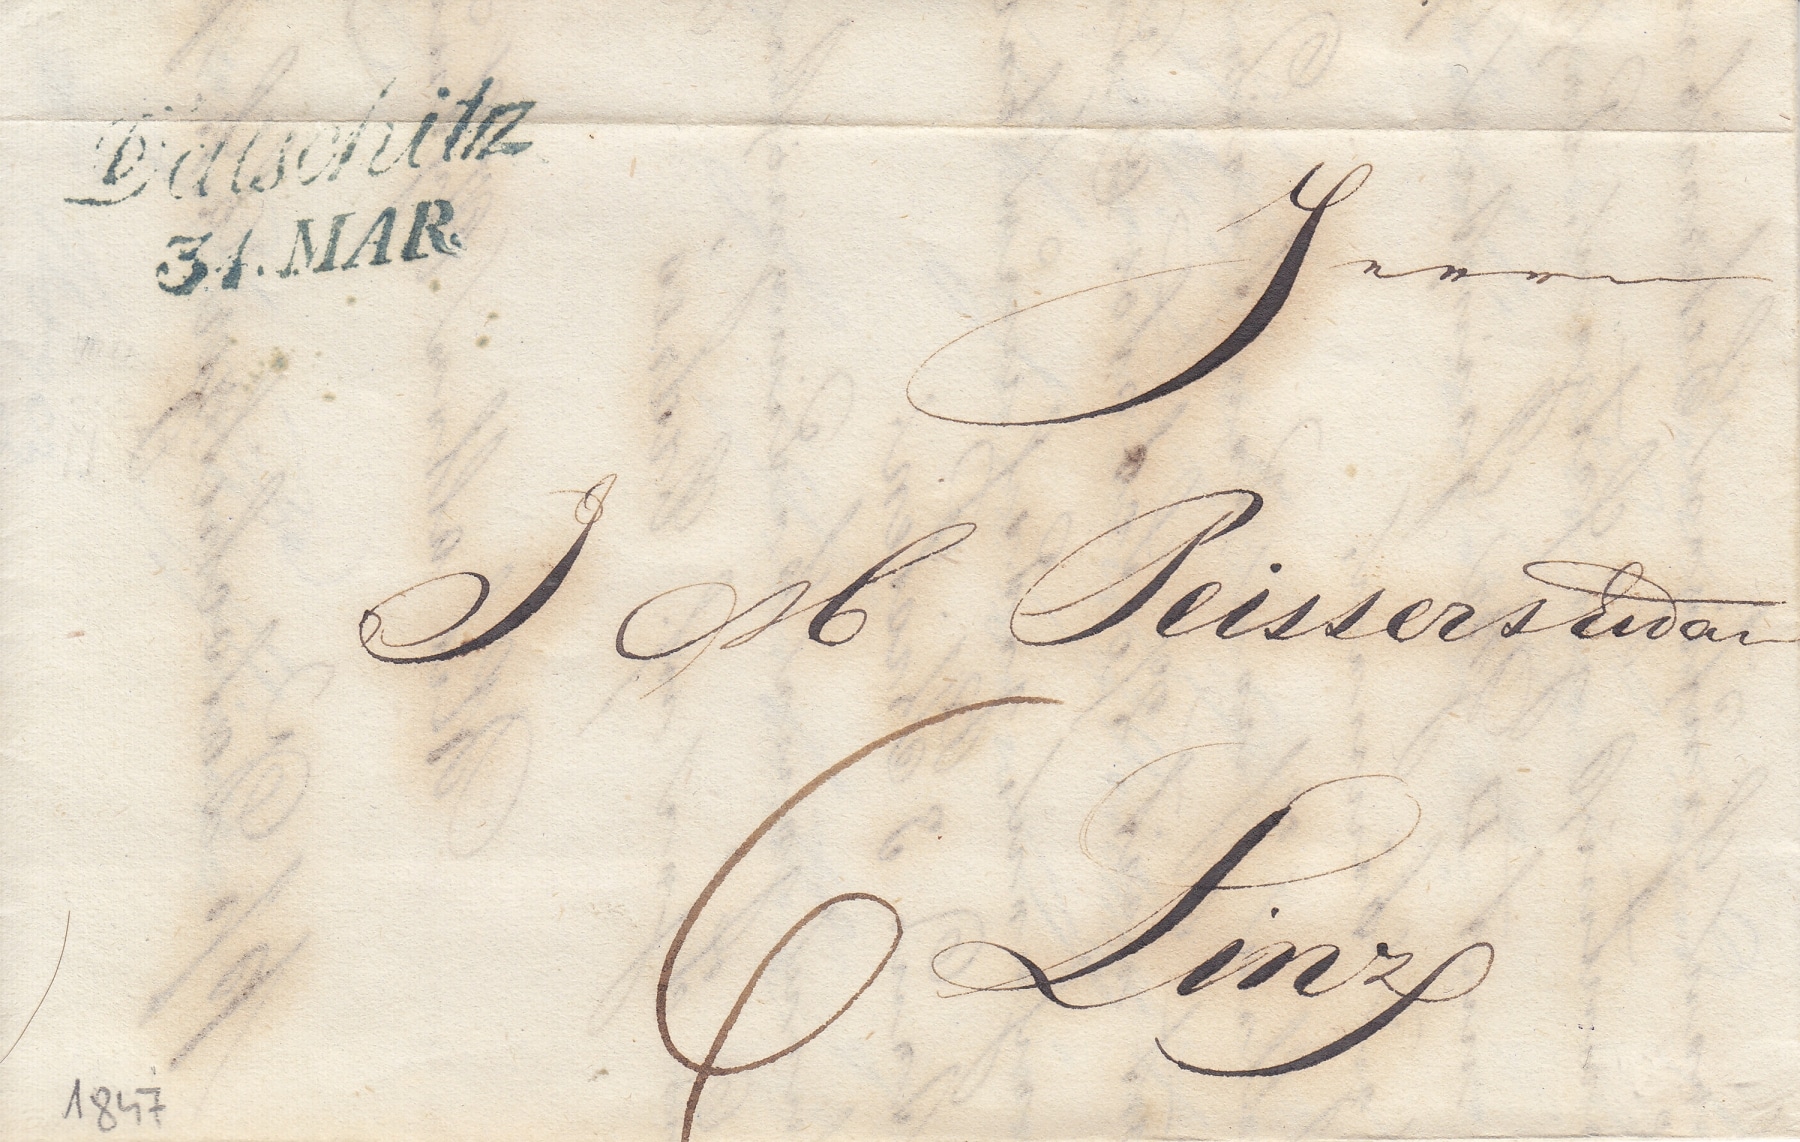 Datschitz
31. MAR.
Herrn
J M Peissers Eidam
6
Linz
1847